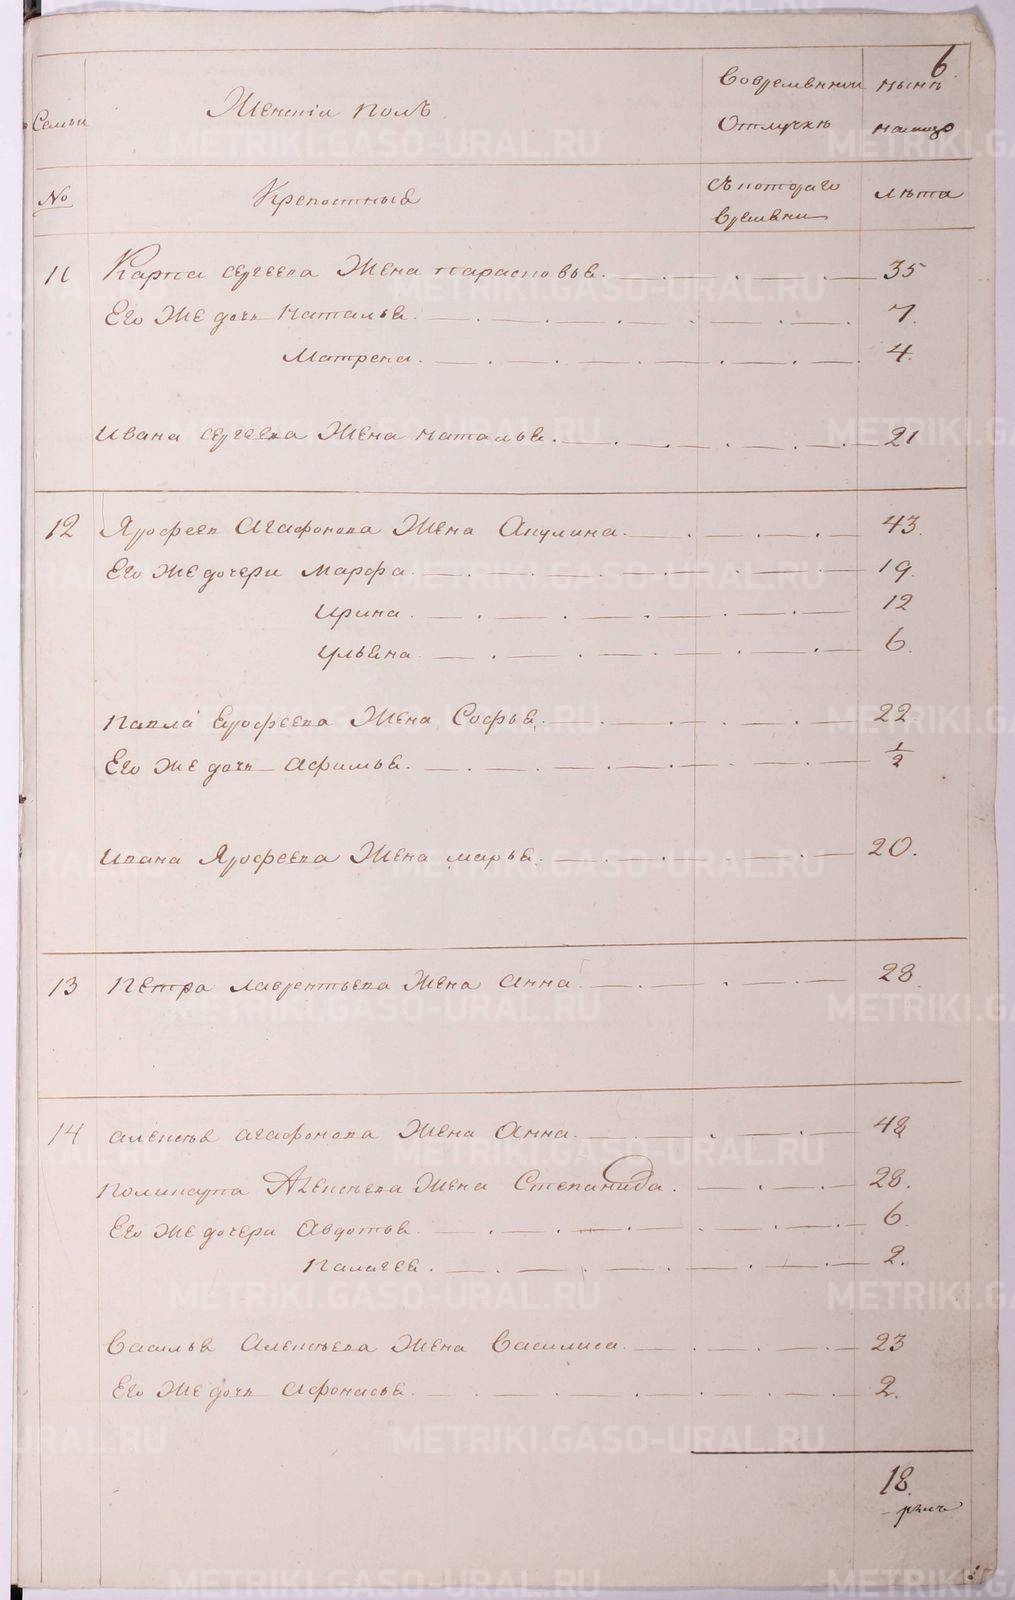 6.
Семьи Женскiй полъ Вовременной нынѣ
Отлучкѣ налицо
№ Крепостныя Съкотораго лѣта
Времени
11 Карпа сергеева Жена парасковья. 35
Его Же дочь Наталья. 7.
Матрена. 4.
Ивана сергеева Жена наталья. 21
12 Ярофеев Агафонова Жена Акулина. 43.
Его Же дочери Марфа. 19.
Ирина. 12
Ульяна. 6.
Павла Ерофеева Жена Софья. 22
Его Же дочь Афимья. 1/2
Ивана Ярофеева Жена марья. 20.
13 Петра Лаврентьева Жена Анна. 28.
14 алексея агафонова Жена Анна. 48
Поликарпа Алексеева Жена Степанида. 28.
Его Же дочери Авдотья. 6
Палагея. 2.
Василья Алексеева Жена Василиса. 23
Его Же дочь Афонасья. 2.
18.
METRIKI.GASO-URAL.RU